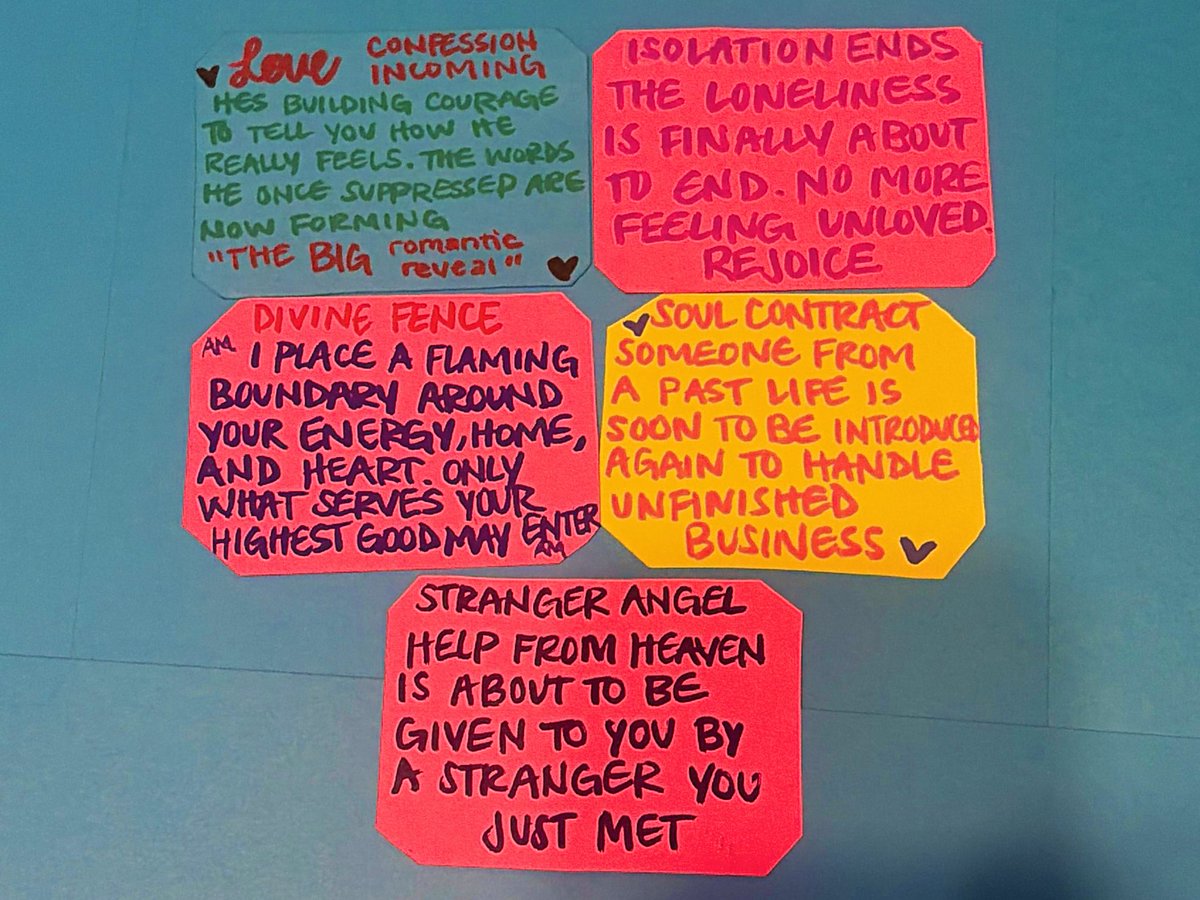 Love CONFESSION INCOMING
HES BUILDING COURAGE
TO TELL YOU HOW HE
REALLY FEELS. THE WORDS
HE ONCE SUPPRESSED ARE
NOW FORMING
"THE BIG romantic reveal"
ISOLATION ENDS
THE LONELINESS
IS FINALLY ABOUT
TO END. NO MORE
FEELING UNLOVED.
REJOICE
DIVINE FENCE
AM I PLACE A FLAMING
BOUNDARY AROUND
YOUR ENERGY, HOME,
AND HEART. ONLY
WHAT SERVES YOUR
HIGHEST GOOD MAY ENTER
AM
SOUL CONTRACT
SOMEONE FROM
A PAST LIFE IS
SOON TO BE INTRODUCED
AGAIN TO HANDLE
UNFINISHED
BUSINESS
STRANGER ANGEL
HELP FROM HEAVEN
IS ABOUT TO BE
GIVEN TO YOU BY
A STRANGER YOU
JUST MET